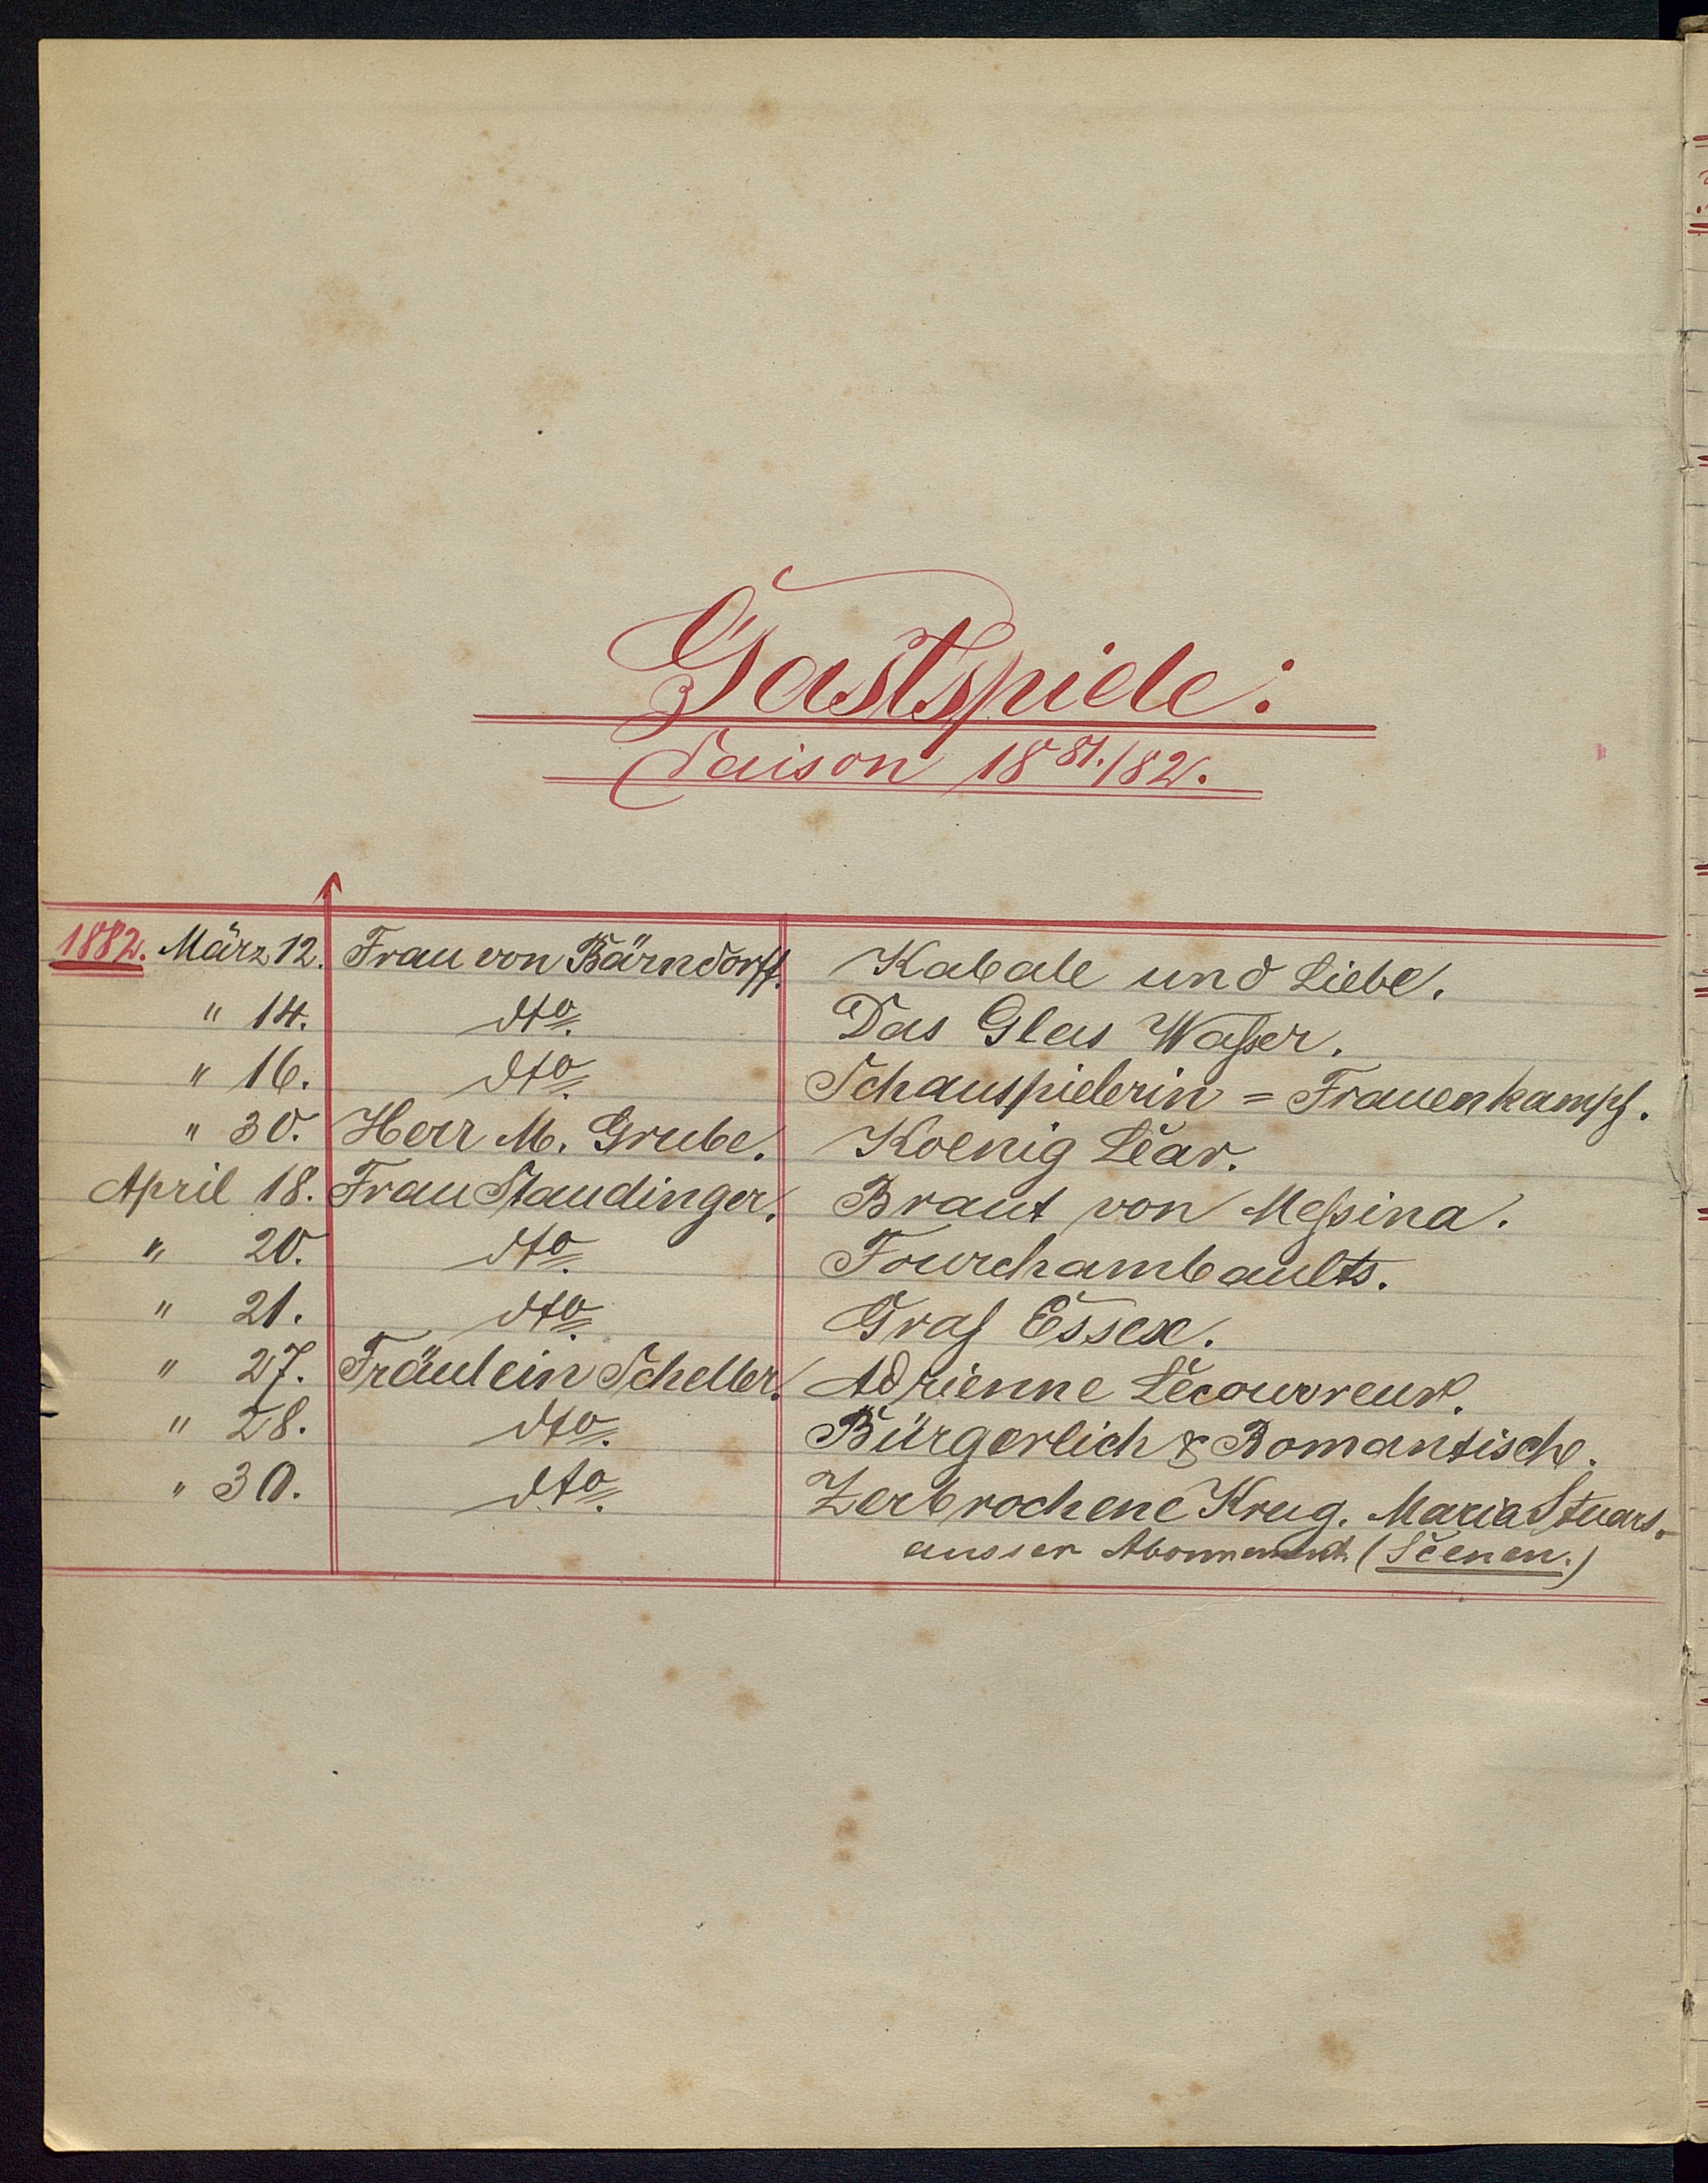 Gastspiele:
Saison 1881./82.
1882. März 12. Frau von Bärndorff. Kabale und Liebe.
" 14. dto. Das Glas Waßer.
" 16. dto. Schauspielerin = Frauenkampf.
" 30. Herr M. Grube. Koenig Lear.
April 18. Frau Staudinger. Braut von Meßina.
" 20. dto. Fourchambaults.
" 21. dto. Graf Essex.
" 27. Fräulein Scheller. Adrienne Lecouvreur.
" 28. dto. Bürgerlich & Romantisch.
" 30. dto. Zerbrochene Krug. Maria Stuart.
ausser Abonnement (Scenen.)